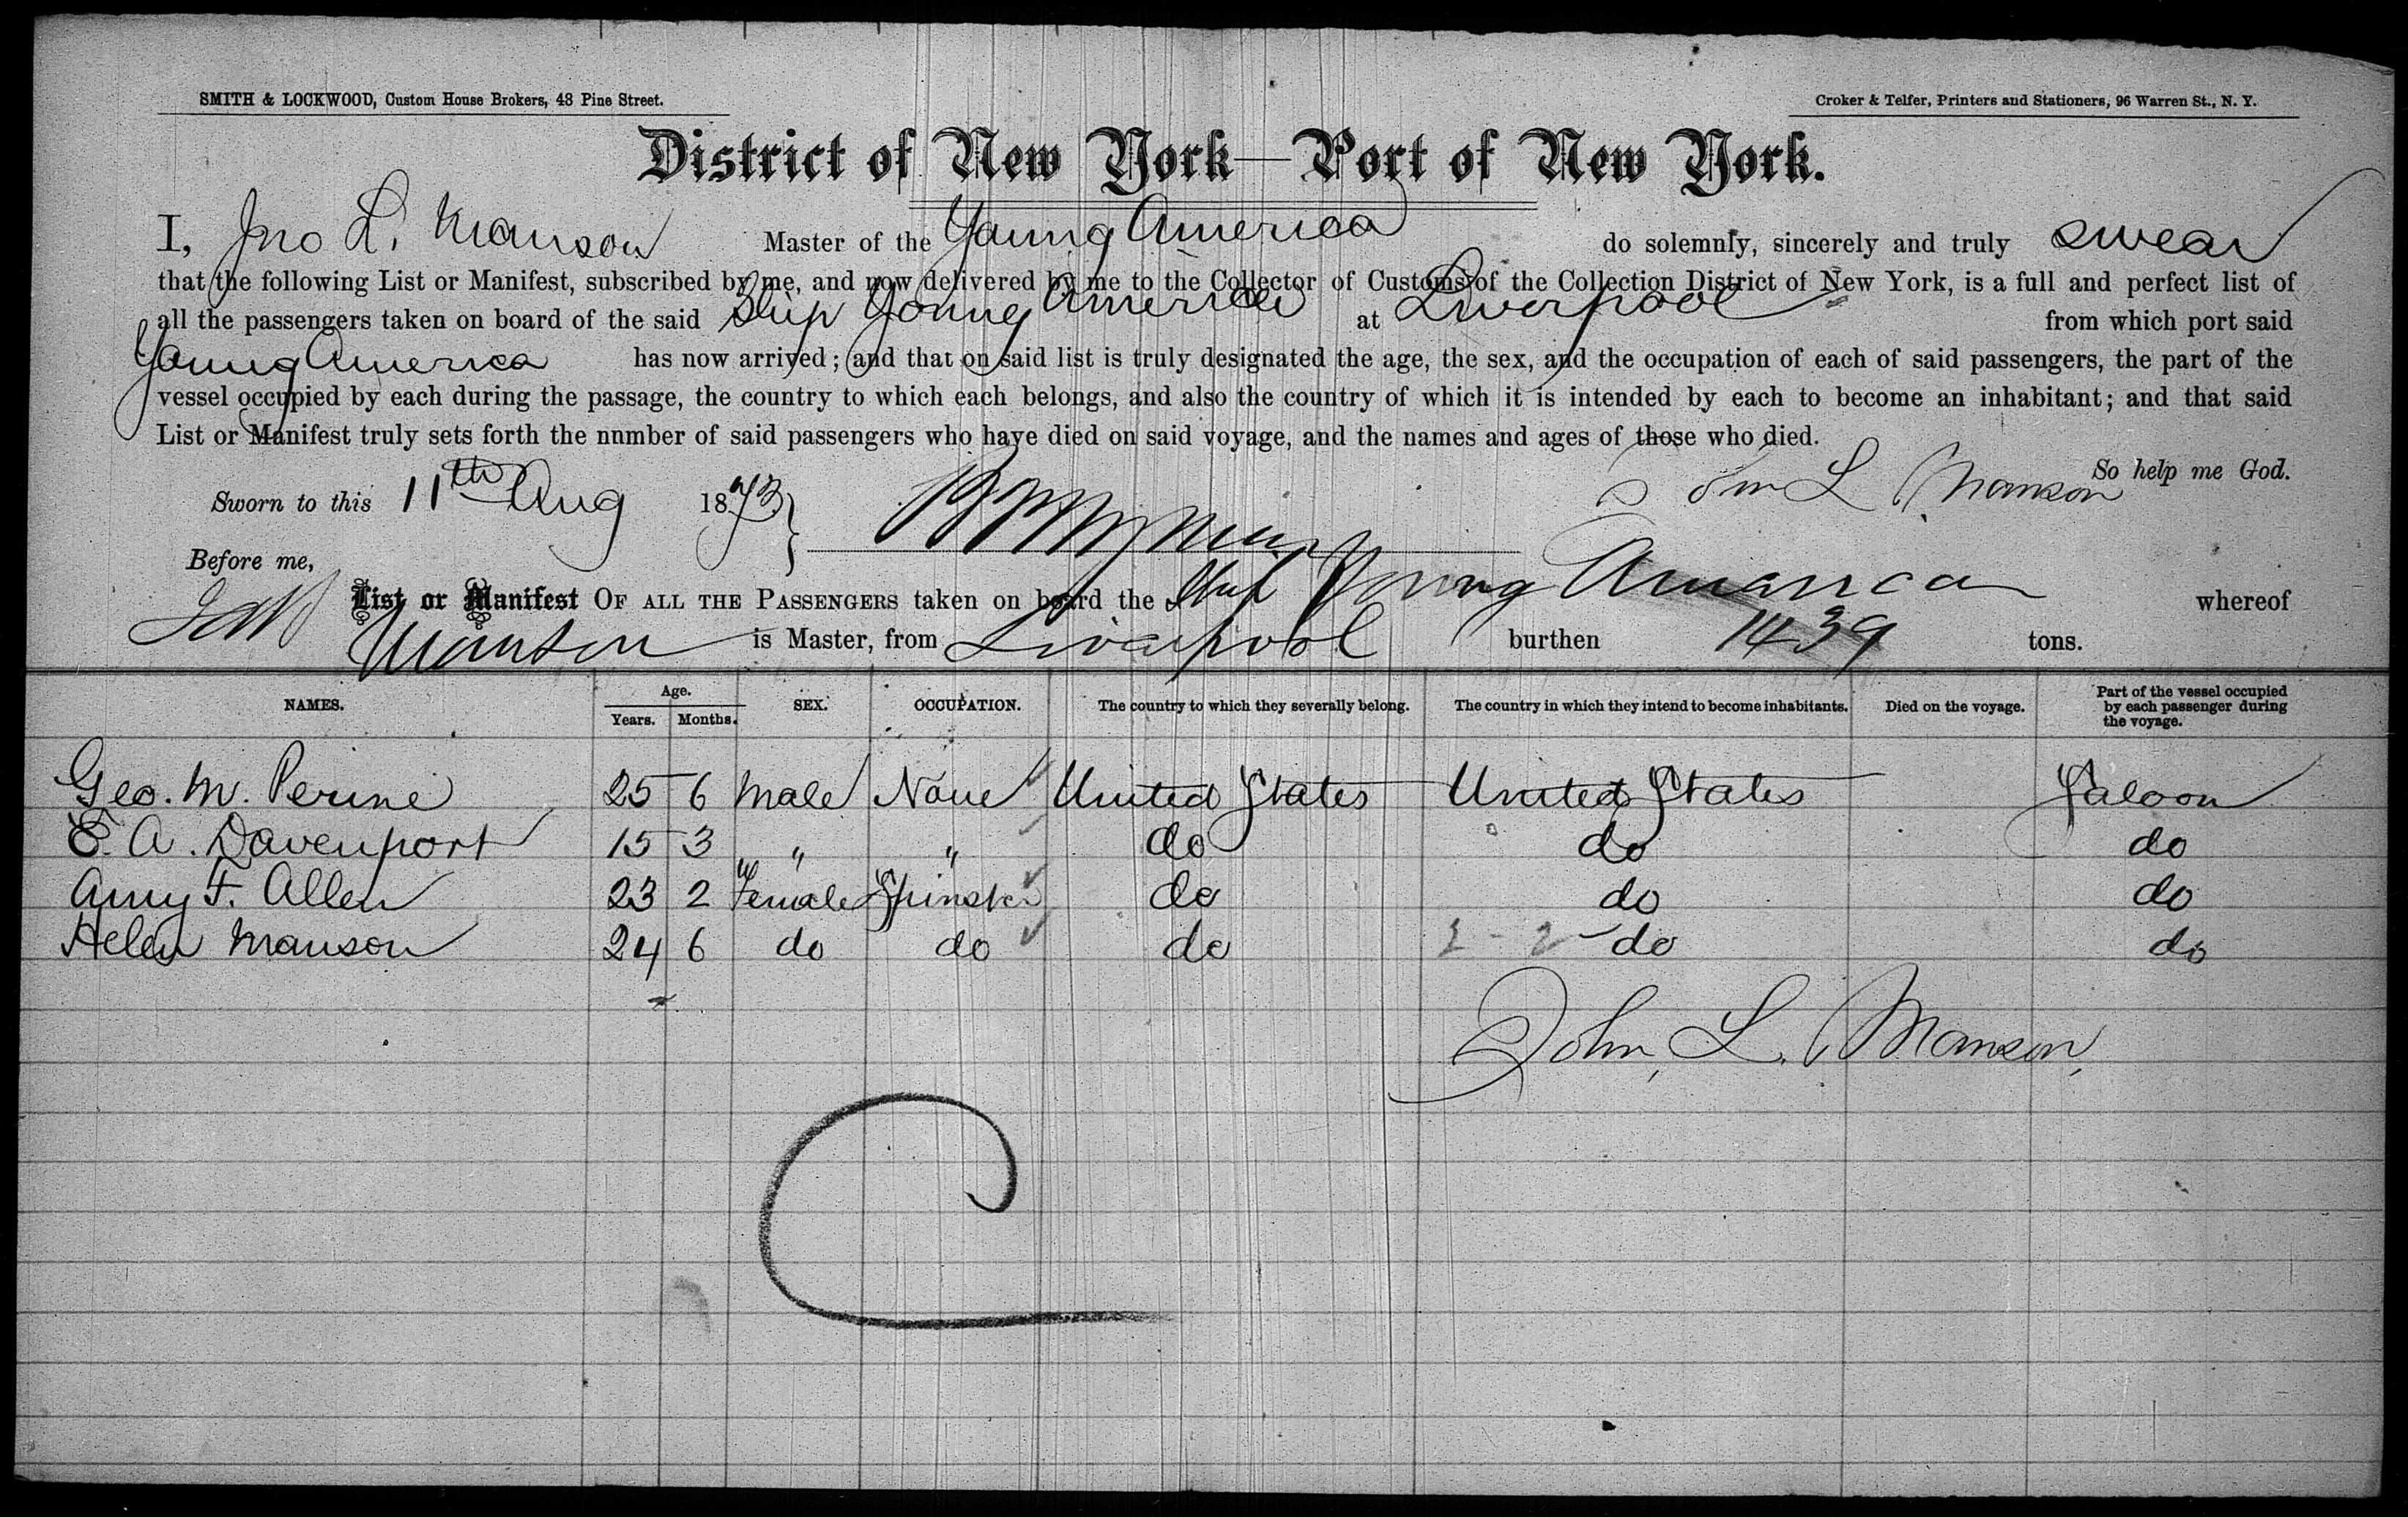 SMITH & LOCKWOOD, Custom House Brokers, 43 Pine Street.
Croker & Telfer, Printers and Stationers, 96 Warren St., N. Y.
District of New York—Port of New York.
I, Jno L. Manson Master of the Young America do solemnly, sincerely and truly swear
that the following List or Manifest, subscribed by me, and now delivered by me to the Collector of Customs of the Collection District of New York, is a full and perfect list of
all the passengers taken on board of the said Ship Young America at Liverpool from which port said
Young America has now arrived; and that on said list is truly designated the age, the sex, and the occupation of each of said passengers, the part of the
vessel occupied by each during the passage, the country to which each belongs, and also the country of which it is intended by each to become an inhabitant; and that said
List or Manifest truly sets forth the nnmber of said passengers who have died on said voyage, and the names and ages of those who died.
So help me God.
Sworn to this 11th Aug 1873 } John L. Manson
Before me,
List or Manifest OF ALL THE PASSENGERS taken on board the Ship Young America whereof
Manson is Master, from Liverpool burthen 1439 tons.
NAMES. Age. Years. Months. SEX. OCCUPATION. The country to which they severally belong. The country in which they intend to become inhabitants. Died on the voyage. Part of the vessel occupied by each passenger during the voyage.
Geo. M. Perine 25 6 Male None United States United States Saloon
E. A. Davenport 15 3 " " do do do
Amy F. Allen 23 2 Female Spinster do do do
Helen Manson 24 6 do do do do do
John L. Manson